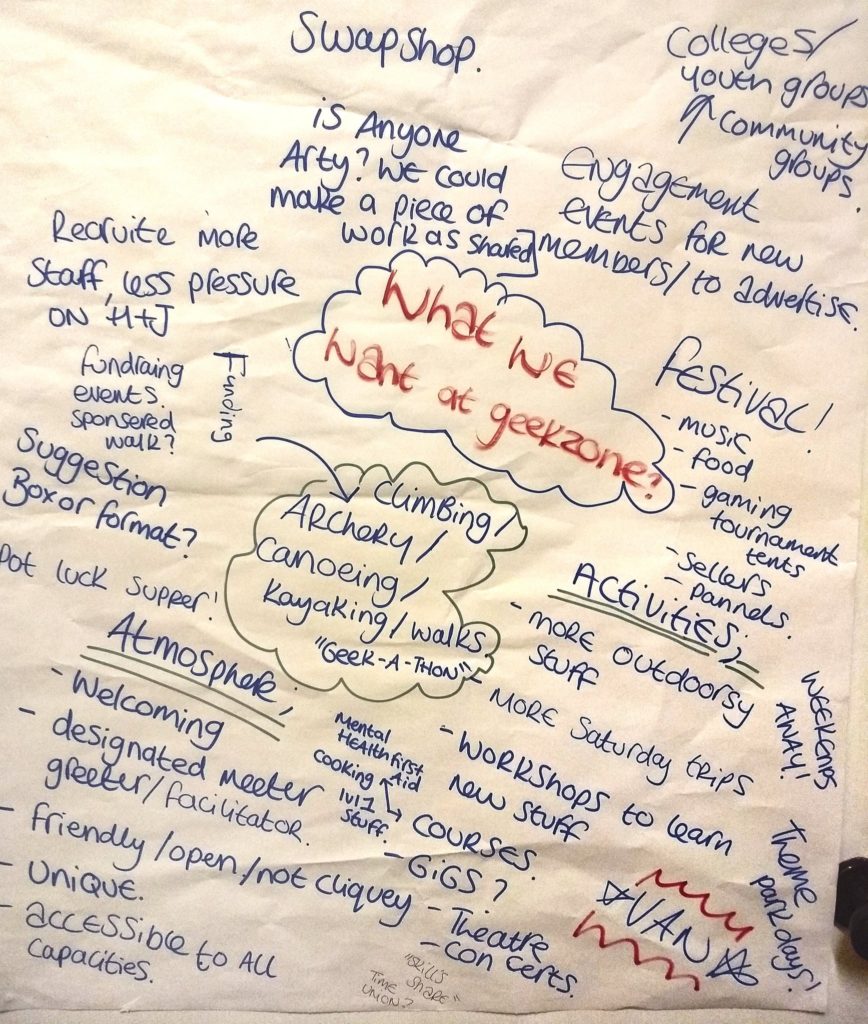 Swapshop.
Colleges/
youth groups
Community
groups.
is Anyone
Arty? We could
make a piece of
work as shared
Engagement
events for new
members/to advertise.
Recruite more
Staff, less pressure
on H+J
What we
want at geekzone?
Fundraing
events.
sponsered
walk?
Funding
Festival!
- music
- food
- gaming
tournament
tents
- Sellers
- pannels.
Suggestion
Box or format?
Pot luck supper!
Climbing/
Archery/
Canoeing/
Kayaking/walks.
"Geek-A-Thon"
Activities;
- more outdoorsy
stuff
- more Saturday trips
- Workshops to learn
new stuff
Courses.
Mental
Health First
Aid
Cooking
1v1 1
stuff.
- Gigs?
- Theatre
- Concerts.
Weekends
away!
Theme
park days!
VAN
Atmosphere;
- Welcoming
- designated meeter
greeter/facilitator.
- friendly/open/not cliquey
- unique.
- accessible to All
capacities.
"Skills
share"
Time
union?